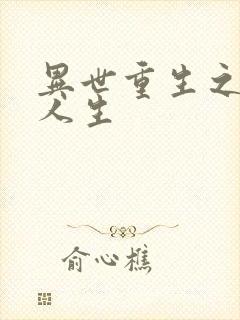 異世重生之
人生
俞心樵